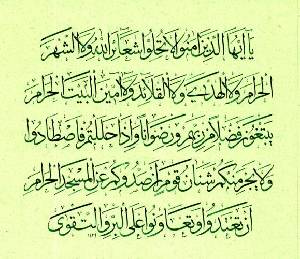 يَا أَيُّهَا الَّذِينَ آمَنُوا لَا تُحِلُّوا شَعَائِرَ اللَّهِ وَلَا الشَّهْرَ
الْحَرَامَ وَلَا الْهَدْيَ وَلَا الْقَلَائِدَ وَلَا آمِّينَ الْبَيْتَ الْحَرَامَ
يَبْتَغُونَ فَضْلًا مِنْ رَبِّهِمْ وَرِضْوَانًا وَإِذَا حَلَلْتُمْ فَاصْطَادُوا
وَلَا يَجْرِمَنَّكُمْ شَنَآنُ قَوْمٍ أَنْ صَدُّوكُمْ عَنِ الْمَسْجِدِ الْحَرَامِ
أَنْ تَعْتَدُوا وَتَعَاوَنُوا عَلَى الْبِرِّ وَالتَّقْوَى